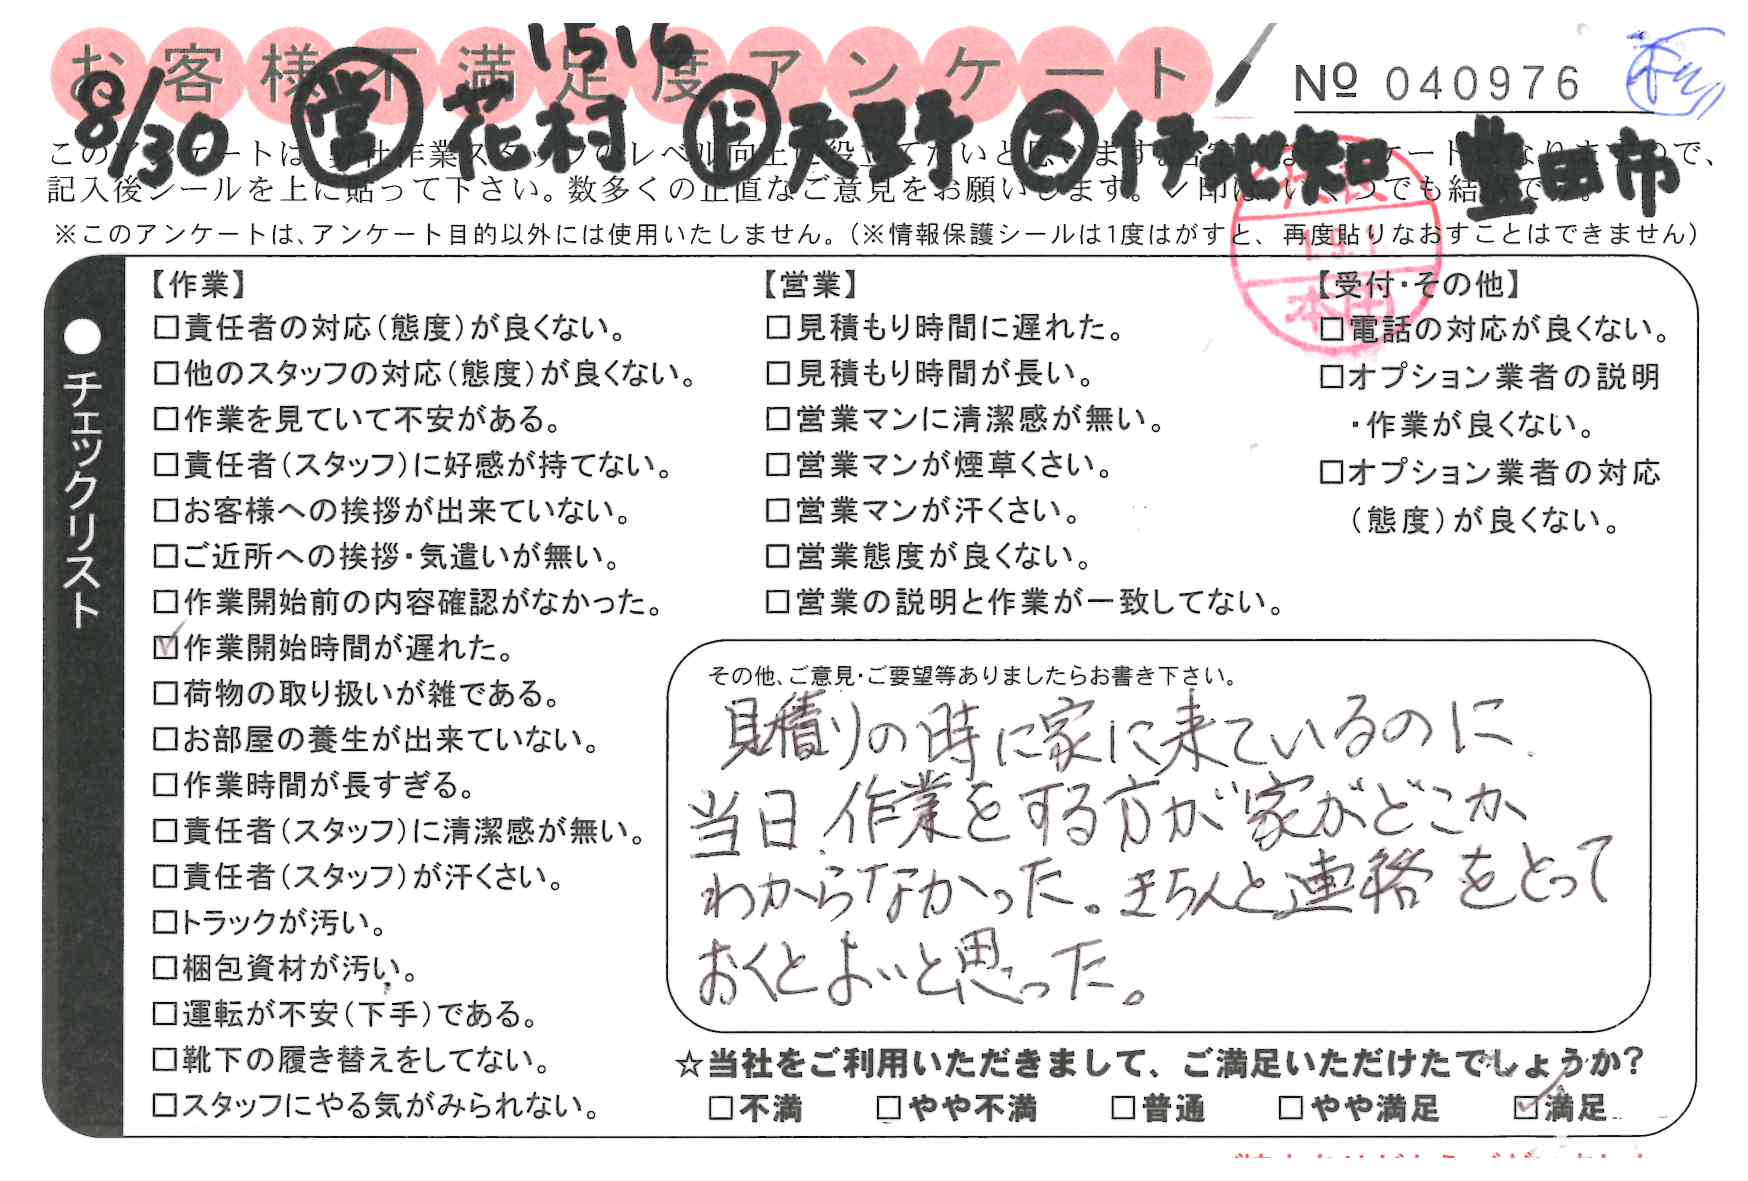 お客様不満足度アンケート
1516
№ 040976
8/30 営 花村 ド 天野 伊地知 豊田市
このアンケートは、弊社作業スタッフのレベル向上に役立てたいと思います。
記入後シールを上に貼って下さい。数多くの正直なご意見をお願いします。✓印は、いくつでも結構です。
※このアンケートは、アンケート目的以外には使用いたしません。(※情報保護シールは1度はがすと、再度貼りなおすことはできません)
●チェックリスト
【作業】
□責任者の対応(態度)が良くない。
□他のスタッフの対応(態度)が良くない。
□作業を見ていて不安がある。
□責任者(スタッフ)に好感が持てない。
□お客様への挨拶が出来ていない。
□ご近所への挨拶・気遣いが無い。
□作業開始前の内容確認がなかった。
☑作業開始時間が遅れた。
□荷物の取り扱いが雑である。
□お部屋の養生が出来ていない。
□作業時間が長すぎる。
□責任者(スタッフ)に清潔感が無い。
□責任者(スタッフ)が汗くさい。
□トラックが汚い。
□梱包資材が汚い。
□運転が不安(下手)である。
□靴下の履き替えをしてない。
□スタッフにやる気がみられない。
【営業】
□見積もり時間に遅れた。
□見積もり時間が長い。
□営業マンに清潔感が無い。
□営業マンが煙草くさい。
□営業マンが汗くさい。
□営業態度が良くない。
□営業の説明と作業が一致してない。
【受付・その他】
□電話の対応が良くない。
□オプション業者の説明
・作業が良くない。
□オプション業者の対応
(態度)が良くない。
その他、ご意見・ご要望等ありましたらお書き下さい。
見積りの時に家に来ているのに
当日、作業をする方が家がどこか
わからなかった。きちんと連絡をとって
おくとよいと思った。
☆当社をご利用いただきまして、ご満足いただけたでしょうか?
□不満 □やや不満 □普通 □やや満足 ☑満足